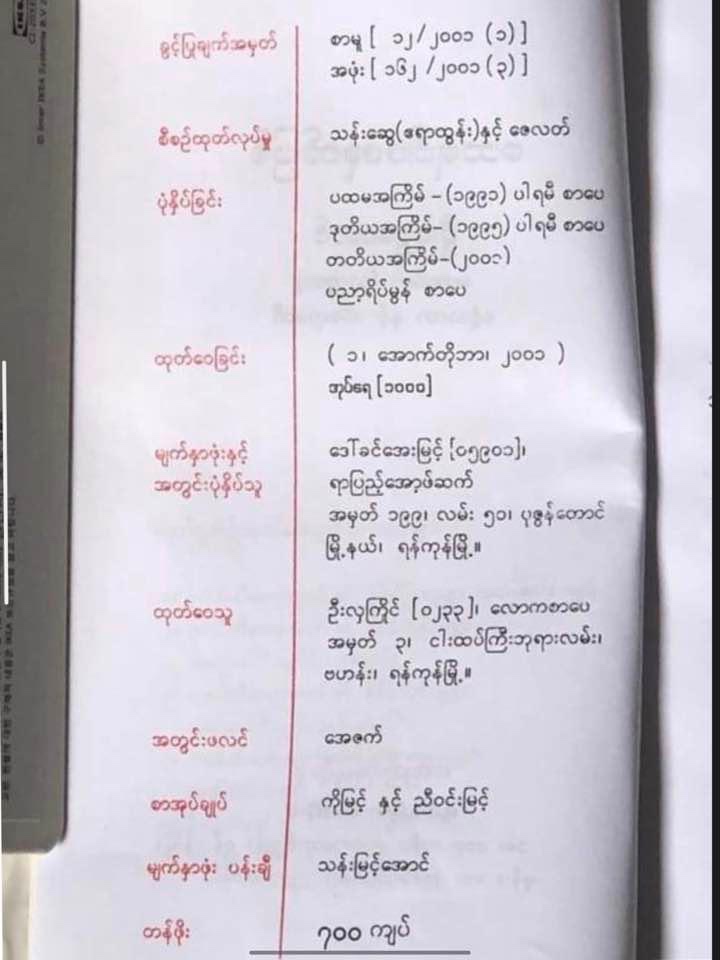 ခွင့်ပြုချက်အမှတ် စာမူ [ ၁၂/၂၀၀၁ (၁) ]
အဖုံး [ ၁၆၂ /၂၀၀၁ (၃) ]
စီစဉ်ထုတ်လုပ်မှု သန်းဆွေ(ဧရာထွန်း)နှင့် ဇေလတ်
ပုံနှိပ်ခြင်း ပထမအကြိမ် – (၁၉၉၁) ပါရမီ စာပေ
ဒုတိယအကြိမ်– (၁၉၉၅) ပါရမီ စာပေ
တတိယအကြိမ်–(၂၀၀၁)
ပညာ့ရိပ်မွန် စာပေ
ထုတ်ဝေခြင်း ( ၁၊ အောက်တိုဘာ၊ ၂၀၀၁ )
အုပ်ရေ [၁၀၀၀]
မျက်နှာဖုံးနှင့် ဒေါ်ခင်အေးမြင့် [၀၅၉၀၁]၊
အတွင်းပုံနှိပ်သူ ရာပြည့်အော့ဖ်ဆက်
အမှတ် ၁၉၉၊ လမ်း ၅၁၊ ပုဇွန်တောင်
မြို့နယ်၊ ရန်ကုန်မြို့။
ထုတ်ဝေသူ ဦးလှကြိုင် [၀၂၃၃]၊ လောကစာပေ
အမှတ် ၃၊ ငါးထပ်ကြီးဘုရားလမ်း၊
ဗဟန်း၊ ရန်ကုန်မြို့။
အတွင်းဖလင် အေဇက်
စာအုပ်ချုပ် ကိုမြင့် နှင့် ညီဝင်းမြင့်
မျက်နှာဖုံး ပန်းချီ သန်းမြင့်အောင်
တန်ဖိုး ၇၀၀ ကျပ်